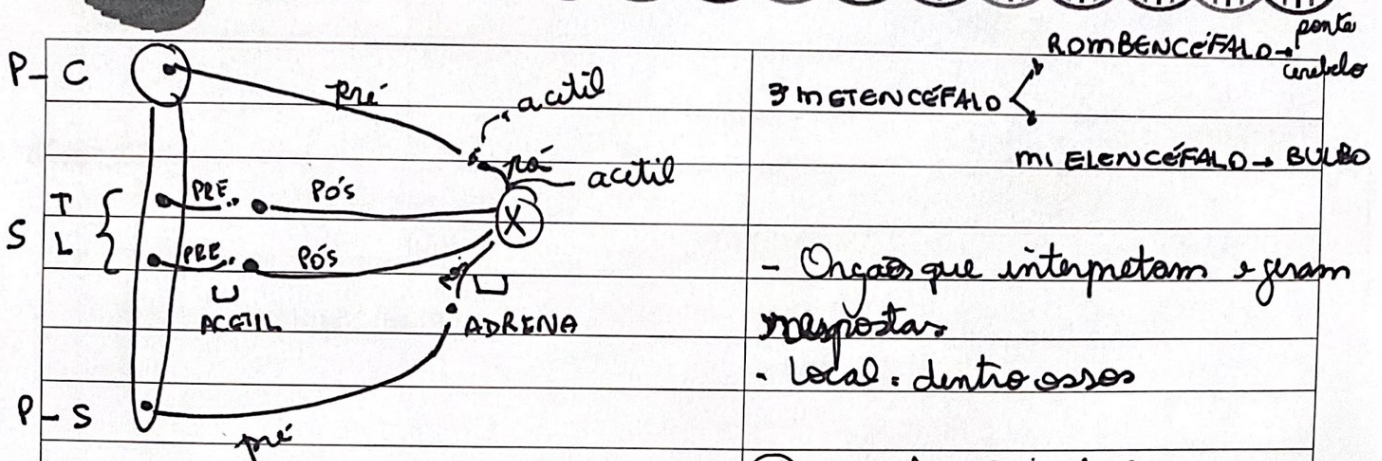 P - C
pré
acetil
pós
acetil
T
PRÉ
PÓS
X
S
L
PRÉ
PÓS
ACETIL
ADRENA
P - S
pré
ROMBENCÉFALO → ponte
cerebelo
3 METENCÉFALO
MIELENCÉFALO → BULBO
- Orgãos que interpretam e geram
respostas
- Local: dentro ossos